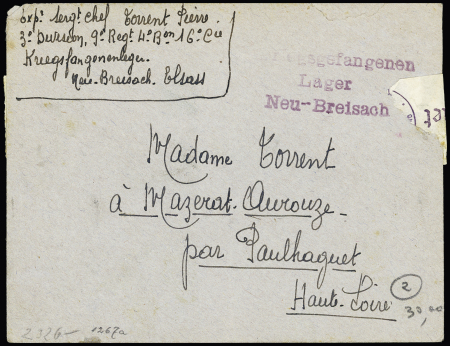 Exp: Sergt chef Torrent Pierre.
3e Durscen, 9e Regt 4e Bon 16e Cie
Kriegsfangenenlager
Neu-Breisach. Elsass
gefangenen
Lager
Neu-Breisach
Madame Torrent
à Mazerat-Aurouze-
par Paulhaguet
Haute-Loire
2
30,00
2326-
1267a